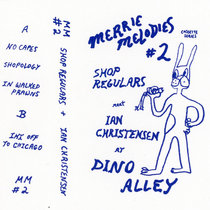 A
NO CAPES
SHOPOLOGY
IN WALKED
PRAWNS
B
INS OFF
TO CHICAGO
MM
#2
MM
#2
SHOP REGULARS + IAN CHRISTENSEN
MERRIE MELODIES
#2
CASSETTE
SERIES
SHOP
REGULARS
MEETS
IAN
CHRISTENSEN
AT
DINO
ALLEY